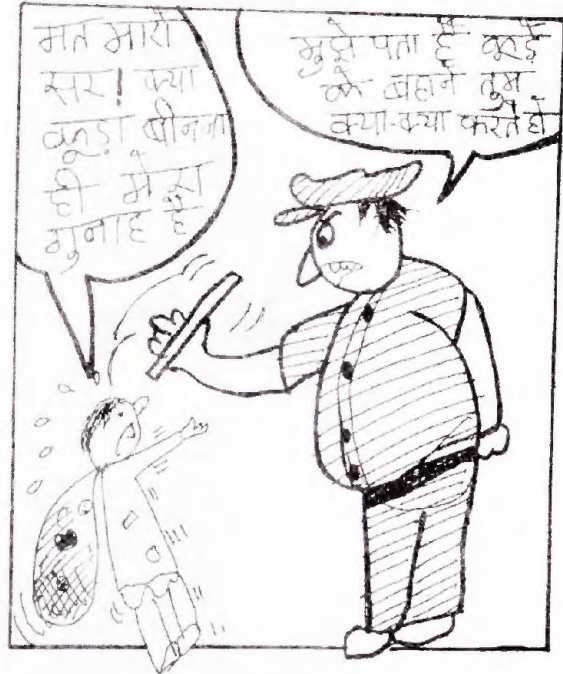 मत मारो
सर! क्या
कूड़ा बीनना
ही मेरा
गुनाह है
मुझे पता है कूड़े
के बहाने तुम
क्या-क्या करते हो